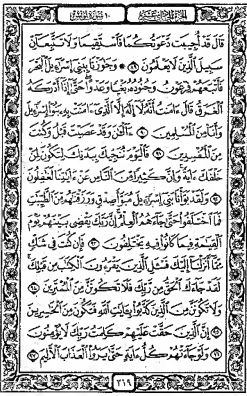 الجزء الحادي عشر ١٠ سورة يونس
قَالَ قَدْ أُجِيبَت دَّعْوَتُكُمَا فَاسْتَقِيمَا وَلَا تَتَّبِعَانِّ
سَبِيلَ الَّذِينَ لَا يَعْلَمُونَ ٨٩ وَجَاوَزْنَا بِبَنِي إِسْرَاءِيلَ الْبَحْرَ
فَأَتْبَعَهُمْ فِرْعَوْنُ وَجُنُودُهُ بَغْيًا وَعَدْوًا حَتَّى إِذَا أَدْرَكَهُ
الْغَرَقُ قَالَ ءَامَنتُ أَنَّهُ لَا إِلَهَ إِلَّا الَّذِي ءَامَنَتْ بِهِ بَنُوا إِسْرَاءِيلَ
وَأَنَا مِنَ الْمُسْلِمِينَ ٩٠ ءَالْآنَ وَقَدْ عَصَيْتَ قَبْلُ وَكُنتَ
مِنَ الْمُفْسِدِينَ ٩١ فَالْيَوْمَ نُنَجِّيكَ بِبَدَنِكَ لِتَكُونَ لِمَنْ
خَلْفَكَ ءَايَةً وَإِنَّ كَثِيرًا مِّنَ النَّاسِ عَنْ ءَايَاتِنَا لَغَافِلُونَ
٩٢ وَلَقَدْ بَوَّأْنَا بَنِي إِسْرَاءِيلَ مُبَوَّأَ صِدْقٍ وَرَزَقْنَاهُم مِّنَ الطَّيِّبَاتِ
فَمَا اخْتَلَفُوا حَتَّى جَاءَهُمُ الْعِلْمُ إِنَّ رَبَّكَ يَقْضِي بَيْنَهُمْ يَوْمَ
الْقِيَامَةِ فِيمَا كَانُوا فِيهِ يَخْتَلِفُونَ ٩٣ فَإِن كُنتَ فِي شَكٍّ
مِّمَّا أَنزَلْنَا إِلَيْكَ فَسْئَلِ الَّذِينَ يَقْرَءُونَ الْكِتَابَ مِن قَبْلِكَ
لَقَدْ جَاءَكَ الْحَقُّ مِن رَّبِّكَ فَلَا تَكُونَنَّ مِنَ الْمُمْتَرِينَ ٩٤
وَلَا تَكُونَنَّ مِنَ الَّذِينَ كَذَّبُوا بِآيَاتِ اللَّهِ فَتَكُونَ مِنَ الْخَاسِرِينَ
٩٥ إِنَّ الَّذِينَ حَقَّتْ عَلَيْهِمْ كَلِمَتُ رَبِّكَ لَا يُؤْمِنُونَ
٩٦ وَلَوْ جَاءَتْهُمْ كُلُّ ءَايَةٍ حَتَّى يَرَوُا الْعَذَابَ الْأَلِيمَ ٩٧
٢١٩